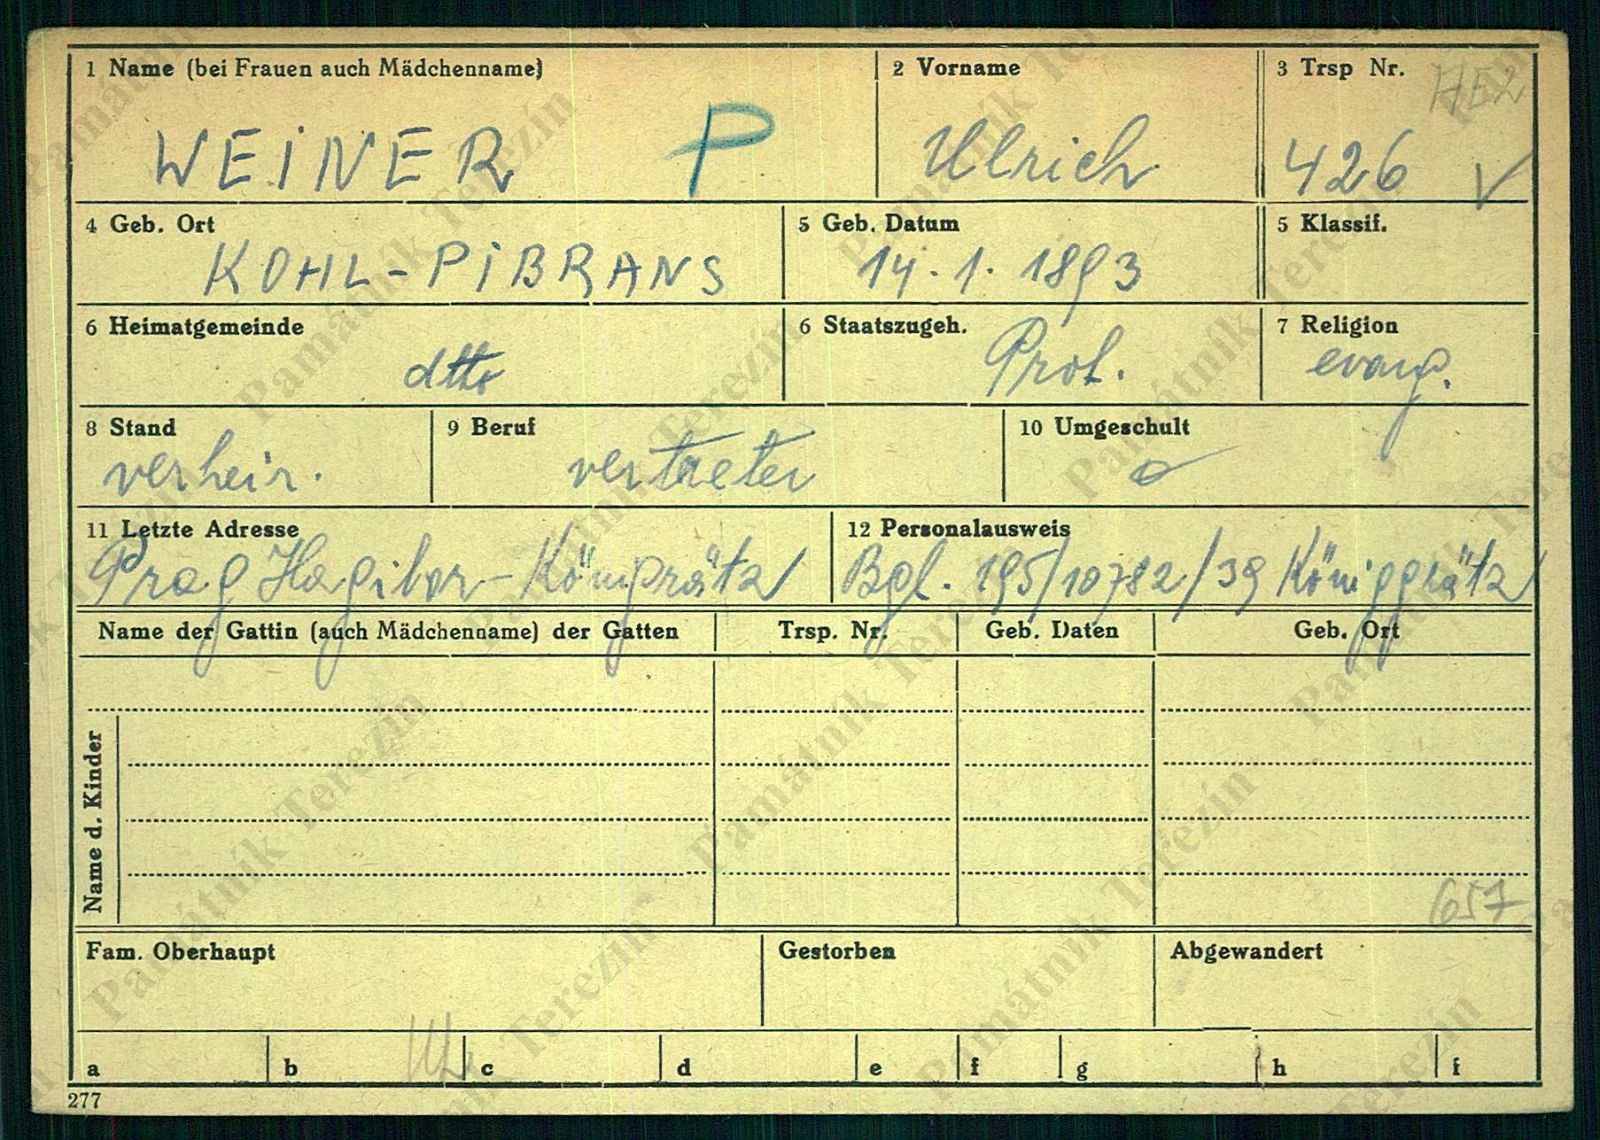 1 Name (bei Frauen auch Mädchenname) 2 Vorname 3 Trsp Nr.
WEINER P Ulrich 426 V
4 Geb. Ort 5 Geb. Datum 5 Klassif.
KOHL-PIBRANS 14.1.1893
6 Heimatgemeinde 6 Staatszugeh. 7 Religion
dtto Prot. evang.
8 Stand 9 Beruf 10 Umgeschult
verheir. vertreter
11 Letzte Adresse 12 Personalausweis
Prag Hagibor - Königgrätz / Bgl. 195/10782/39 Königgrätz
Name der Gattin (auch Mädchenname) der Gatten Trsp. Nr. Geb. Daten Geb. Ort
Name d. Kinder
657
Fam. Oberhaupt Gestorben Abgewandert
a b c d e f g h i
277
Památník Terezín